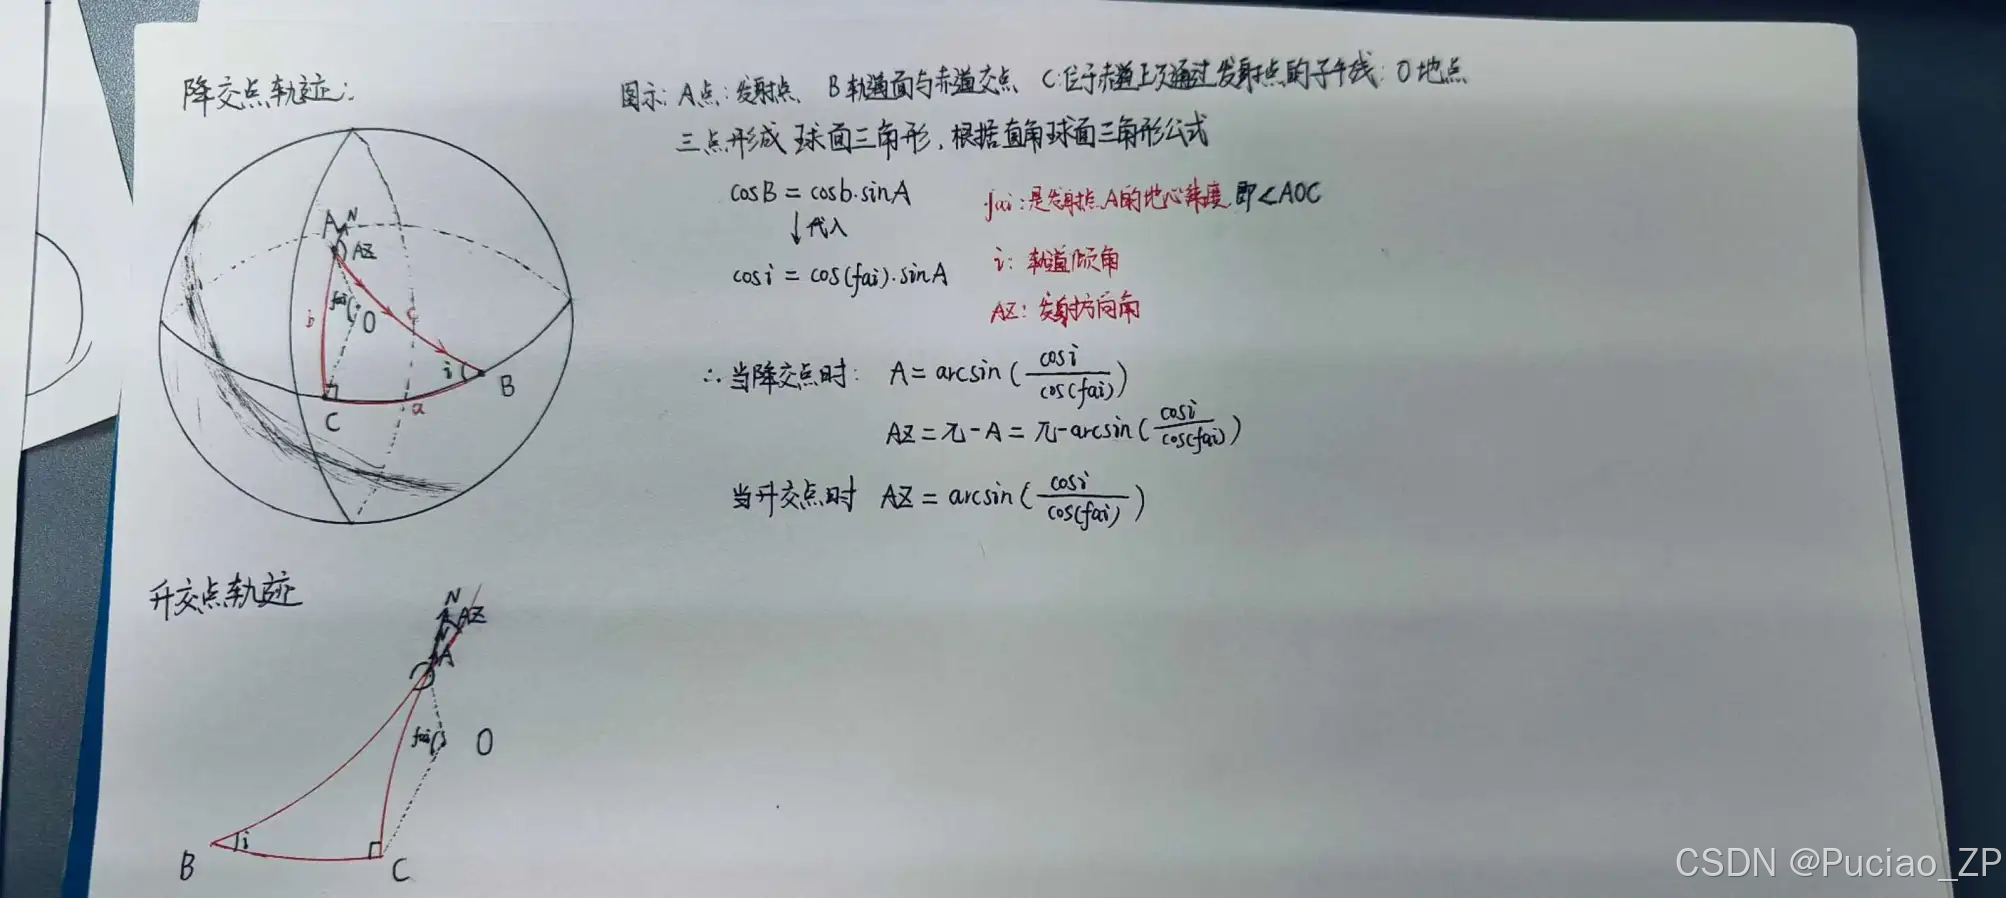 降交点轨迹:
图示: A点: 发射点、 B 轨道面与赤道交点、 C: 位于赤道上又通过发射点的子午线: O 地点
三点形成 球面三角形, 根据直角球面三角形公式
cosB = cosb·sinA
fai: 是发射点A的地心纬度 即∠AOC
↓代入
cosi = cos(fai)·sinA
i: 轨道倾角
AZ: 发射方向角
∴ 当降交点时: A = arcsin(cosi/cos(fai))
AZ = π-A = π-arcsin(cosi/cos(fai))
当升交点时 AZ = arcsin(cosi/cos(fai))
A N
AZ
fai
O
b
c
i
B
C
a
升交点轨迹
N
AZ
A
fai
O
i
B
C
CSDN @Puciao_ZP